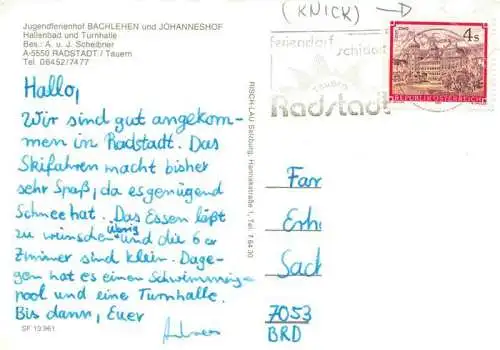 (KNICK)
Jugendferienhof BACHLEHEN und JOHANNESHOF
Hallenbad und Turnhalle
Bes.: A. u. J. Scheibner
A-5550 RADSTADT / Tauern
Tel. 06452/7477
Feriendorf
Tauern
Radstadt
4s
STAMS
REPUBLIK ÖSTERREICH
Hallo,
Wir sind gut angekom-
men in Radstadt. Das
Skifahren macht bisher
sehr Spaß, da es genügend
Schnee hat. Das Essen läßt
zu wünschen übrig und die 6er
Zimmer sind klein. Dage-
gen hat es einen Schwimming-
pool und eine Turnhalle.
Bis dann, Euer
RISCH-LAU Salzburg, Hannakstraße 1, Tel. 7 64 00
Fam
Erh
Sach
7053
BRD
SF 13 961